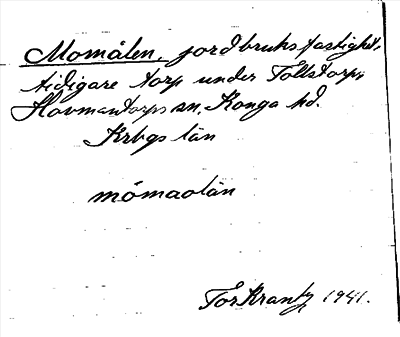 Momålen, jordbruksfastighet,
tidigare torp under Tollstorp,
Hovmantorps sn, Konga hd.
Krbgs län
mòmaolän
Tor Krantz 1941.